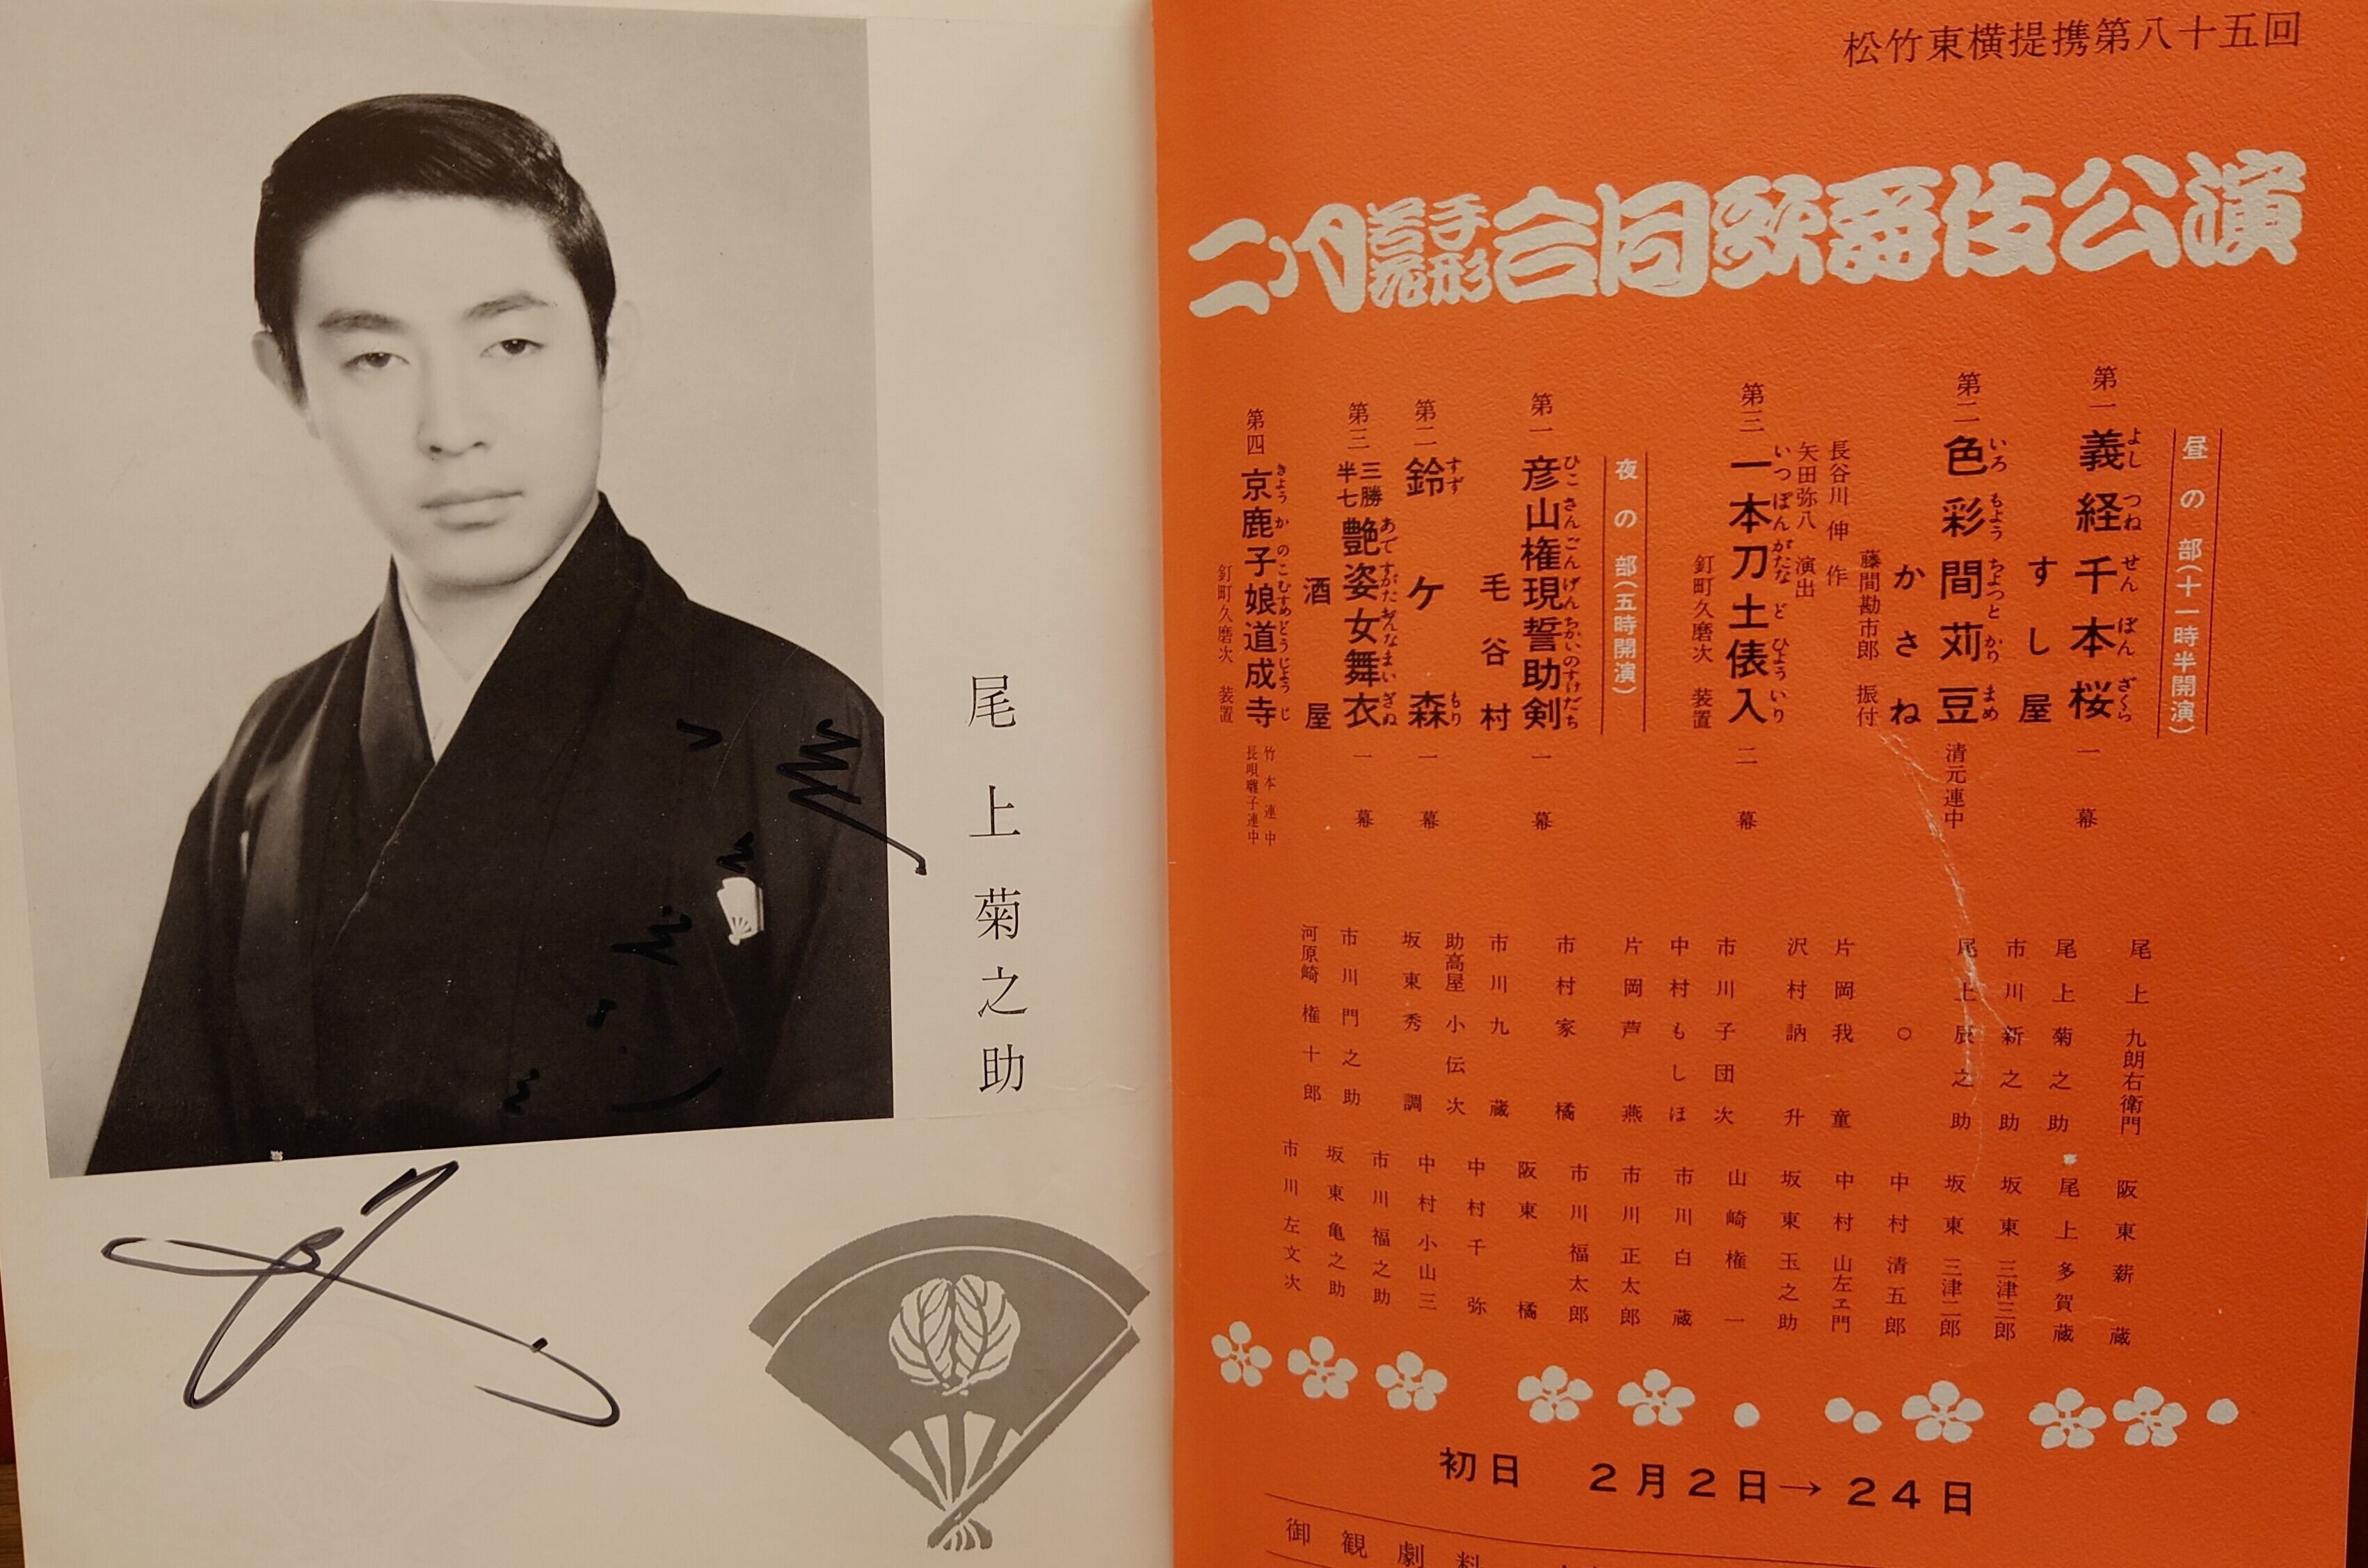 尾上菊之助
松竹東横提携第八十五回
二月若手花形合同歌舞伎公演
昼の部(十一時半開演)
第一 義経千本桜 一幕
よしつねせんぼんざくら
すし屋
第二 色彩間苅豆 清元連中
いろもようちよつとかりまめ
かさね
藤間勘市郎 振付
長谷川伸 作
矢田弥八 演出
第三 一本刀土俵入 二幕
いつぽんがたなどひよういり
釘町久磨次 装置
夜の部(五時開演)
第一 彦山権現誓助剣 一幕
ひこさんごんげんちかいのすけだち
毛谷村
第二 鈴ケ森 一幕
すずもり
第三 三勝半七 艶姿女舞衣 一幕
あですがたおんなまいぎぬ
酒屋
第四 京鹿子娘道成寺 竹本連中 長唄囃子連中
きようかのこむすめどうじようじ
釘町久磨次 装置
尾上九朗右衛門
尾上菊之助
市川新之助
尾上辰之助
○
片岡我童
沢村訥升
市川子団次
中村もしほ
片岡芦燕
市村家橘
市川九蔵
助高屋小伝次
坂東秀調
市川門之助
河原崎権十郎
阪東薪蔵
尾上多賀蔵
坂東三津三郎
坂東三津二郎
中村清五郎
中村山左ヱ門
坂東玉之助
山崎権一
市川白蔵
市川正太郎
市川福太郎
阪東橘
中村千弥
中村小山三
市川福之助
坂東亀之助
市川左文次
初日 2月2日→24日
御観劇料